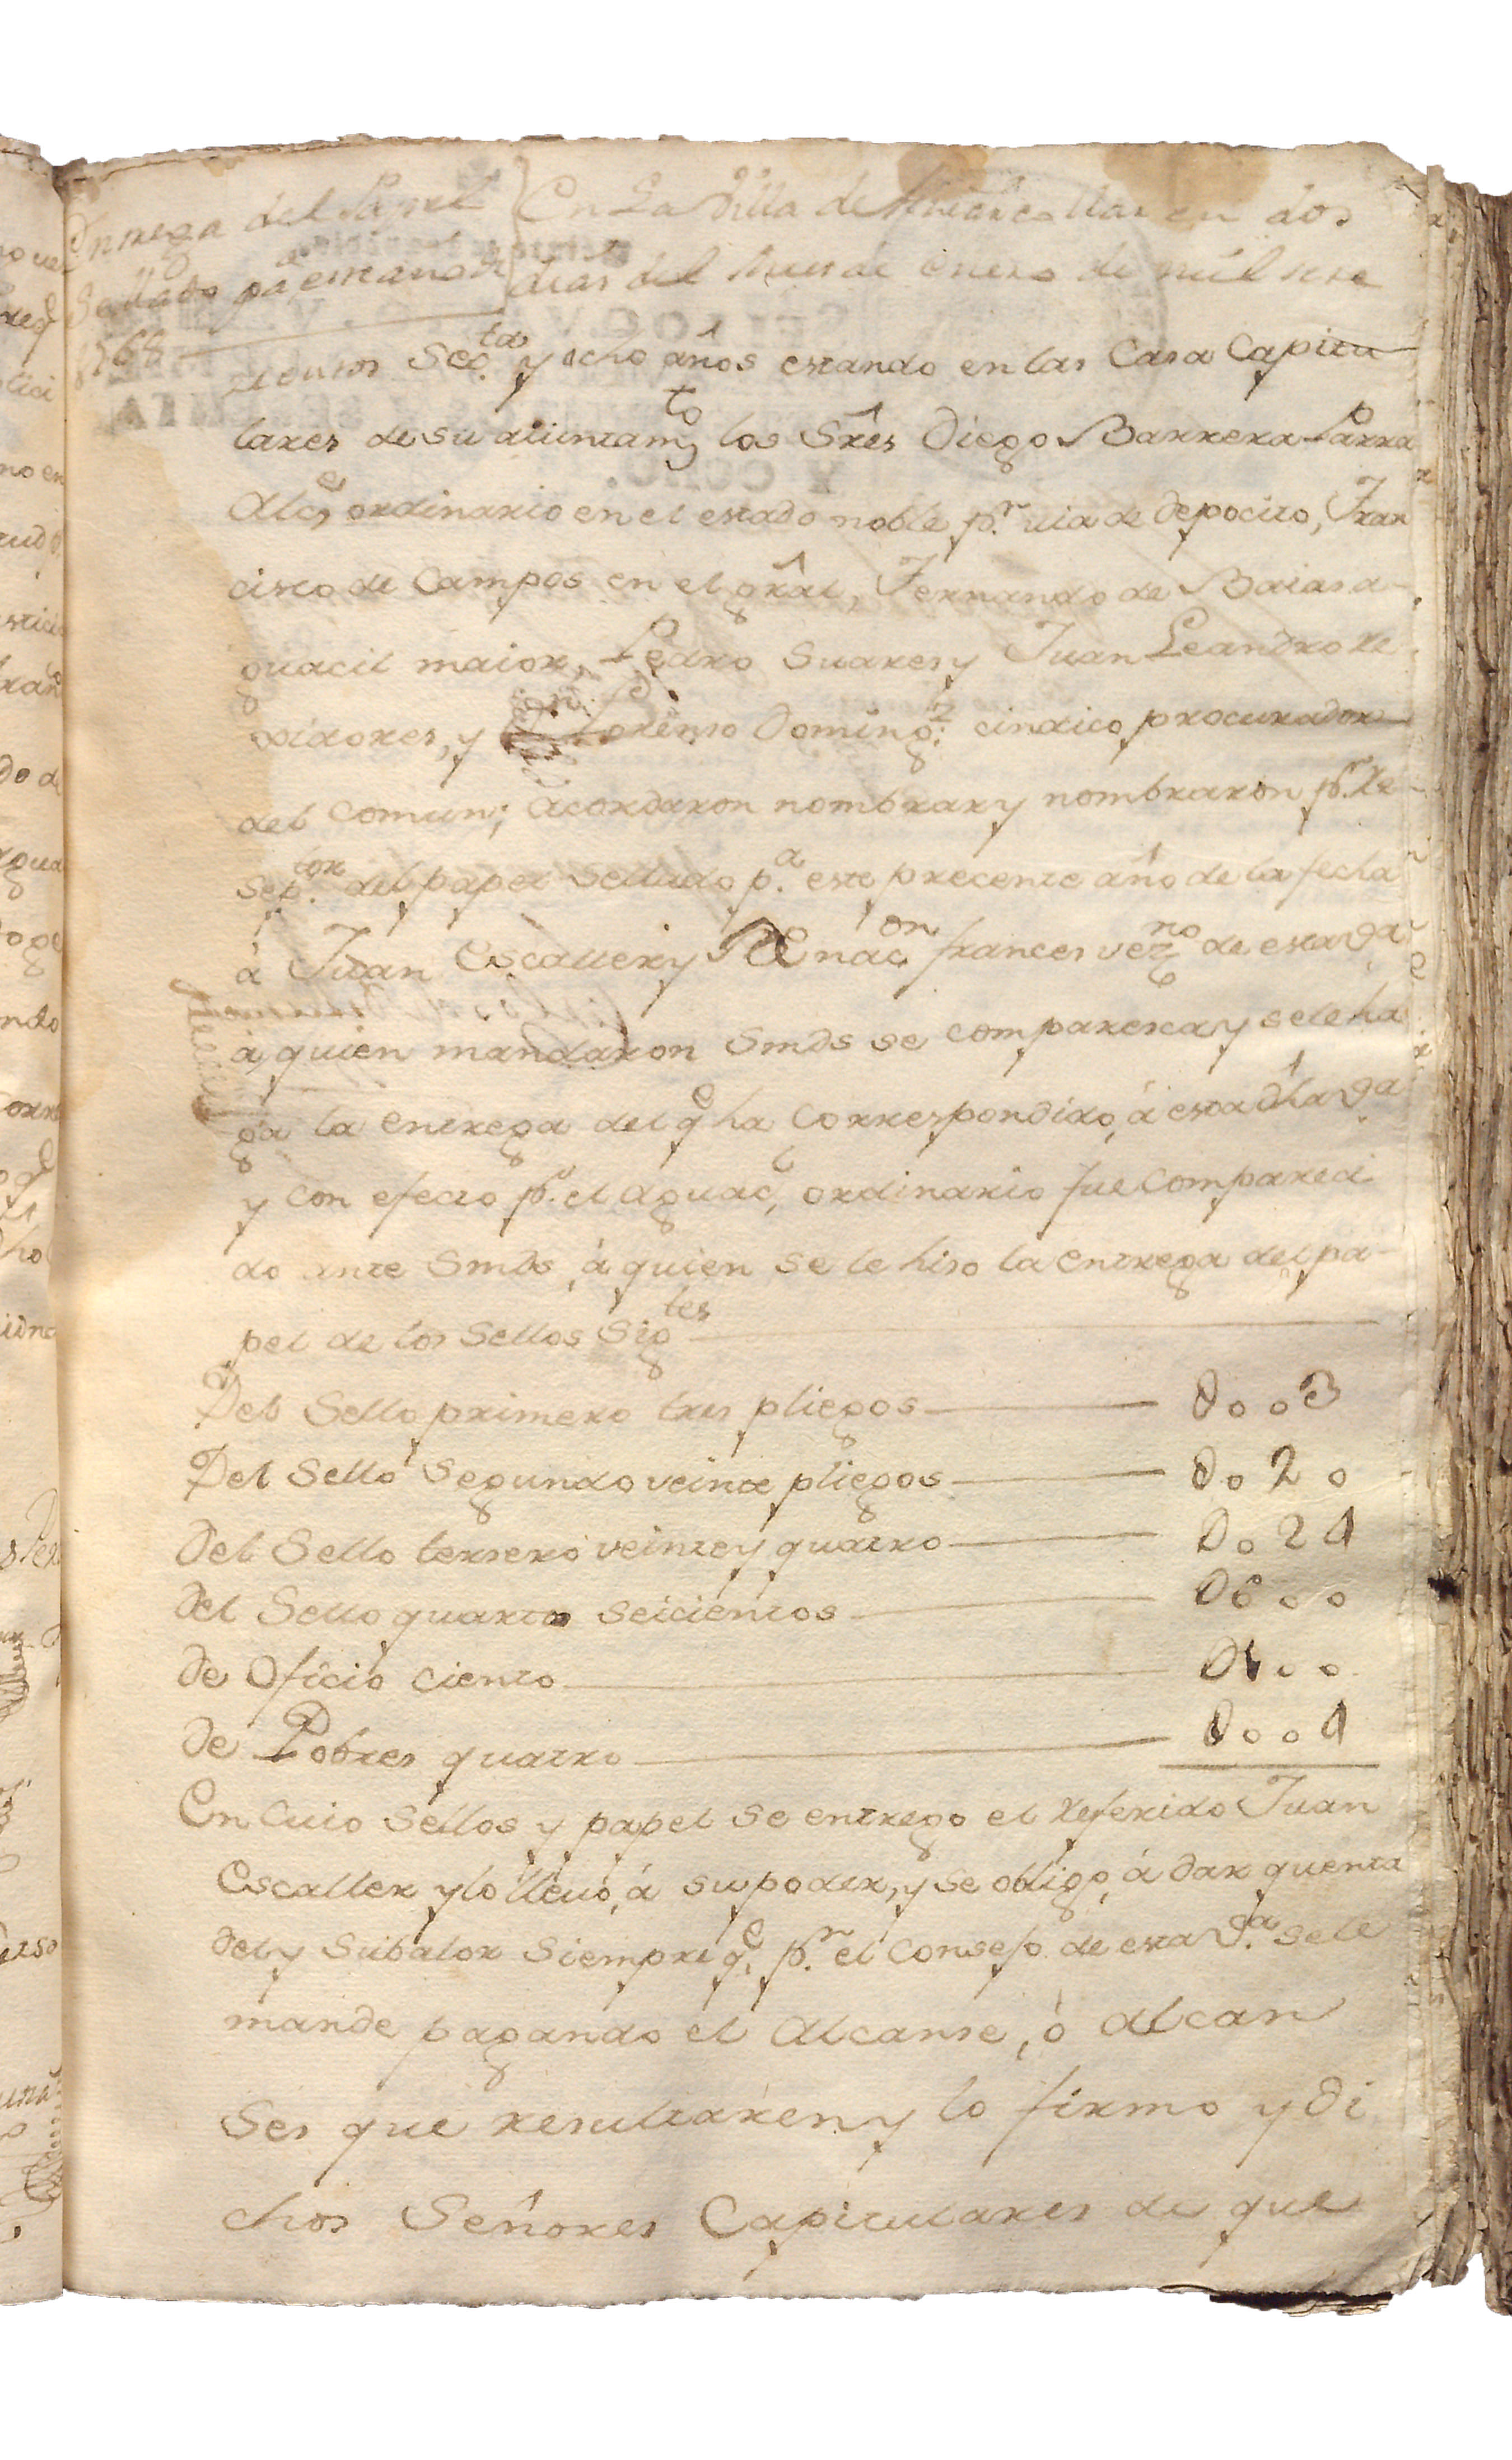 Entrega del Papel
Sellado pa este año de
1768
En La Villa de en dos
dias del mes de enero de mil sete
cientos Sesta y ocho años estando en las Casa Capitu
lares de su aiuntamto los Sres Diego Barrera Parra
Alce ordinario en el estado noble pr uia de depocito, Fran
cisco de Campos en el gral, Fernando de Baias a
guacil maior, Pedro Suares y Juan Leandro Re
xidores, y Lorenso Domingz cindico procurador
del Comun; acordaron nombrar y nombraron pr Re
septor del papel Sellado pa este precente año de la fecha
á Juan Escallery de nacon frances vezno de esta Va
á quien mandaron Smds se comparesca y se le ha
ga la entrega del qe ha Correspondido, á esta dha Va
y con efecto pr el Aguac, ordinario fue Compareci
do ante Smds, á quien se le hiso la entrega del pa-
pel de los Sellos Sigtes
Del Sello primero tres pliegos — 0003
Del Sello Segundo veinte pliegos — 0020
Del Sello tersero veinte y quatro — 0024
del Sello quarto seicientos — 0600
de Oficio ciento — 0100
de Pobres quatro — 0004
En Cuio Sellos y papel se entrego el Referido Juan
Escaller y lo lleuó, á su poder, y se obligo, á dar quenta
del y Subalor Siempre qe pr el Consejo de esta Va se le
mande pagando el Alcanse, ó alcan
ses que resultaren y lo firmo y di
chos Señores Capitulares de que